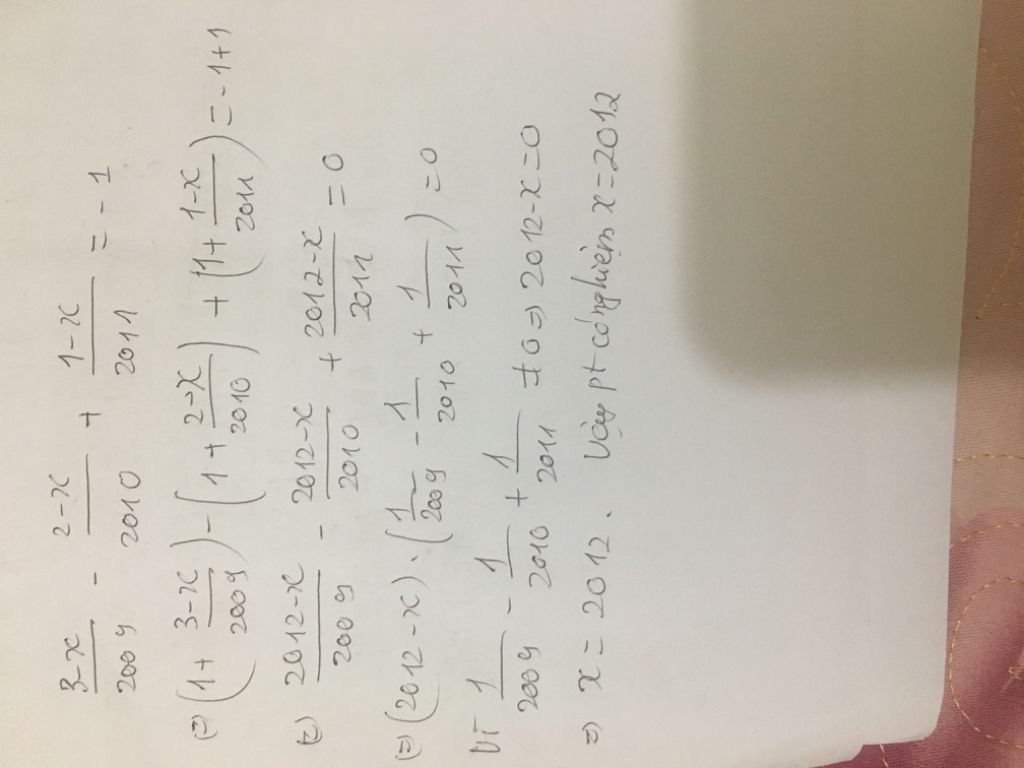 3-x/2009 - 2-x/2010 + 1-x/2011 = -1
(=) (1 + 3-x/2009) - (1 + 2-x/2010) + (1 + 1-x/2011) = -1+1
(=) 2012-x/2009 - 2012-x/2010 + 2012-x/2011 = 0
(=) (2012-x).(1/2009 - 1/2010 + 1/2011) = 0
Vì 1/2009 - 1/2010 + 1/2011 ≠ 0 => 2012-x=0
=> x = 2012. Vậy pt có nghiệm x=2012